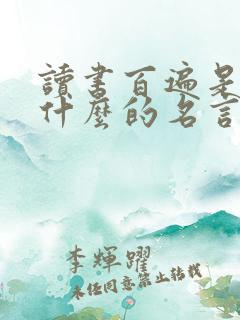 讀書百遍是
什麼的名言
李輝躍
未任同意禁止转载